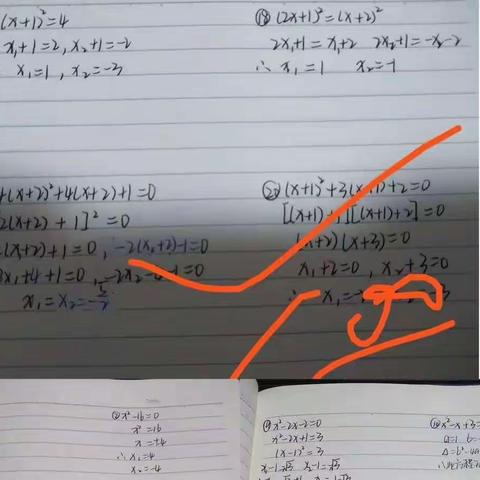 (x+1)²=4
x₁+1=2, x₂+1=-2
x₁=1, x₂=-3
⑱(2x+1)²=(x+2)²
2x₁+1=x₁+2 2x₂+1=-x₂-2
∴x₁=1 x₂=-1
+(x+2)²+4(x+2)+1=0
2(x+2)+1]²=0
(x+2)+1=0, -2(x₂+2)-1=0
x₁+4+1=0, -2x₂-4-1=0
x₁=x₂=-5/2
⑳(x+1)²+3(x+1)+2=0
[(x+1)+1][(x+1)+2]=0
(x+2)(x+3)=0
x₁+2=0, x₂+3=0
∴ x₁=
90
x²-16=0
x²=16
x=±4
∴x₁=4
x₂=-4
x²-2x-2=0
x²-2x+1=3
(x-1)²=3
x₁-1=√3 x₂-1=-√3
x²-x+3=
a=1 b=
Δ=b²-4a